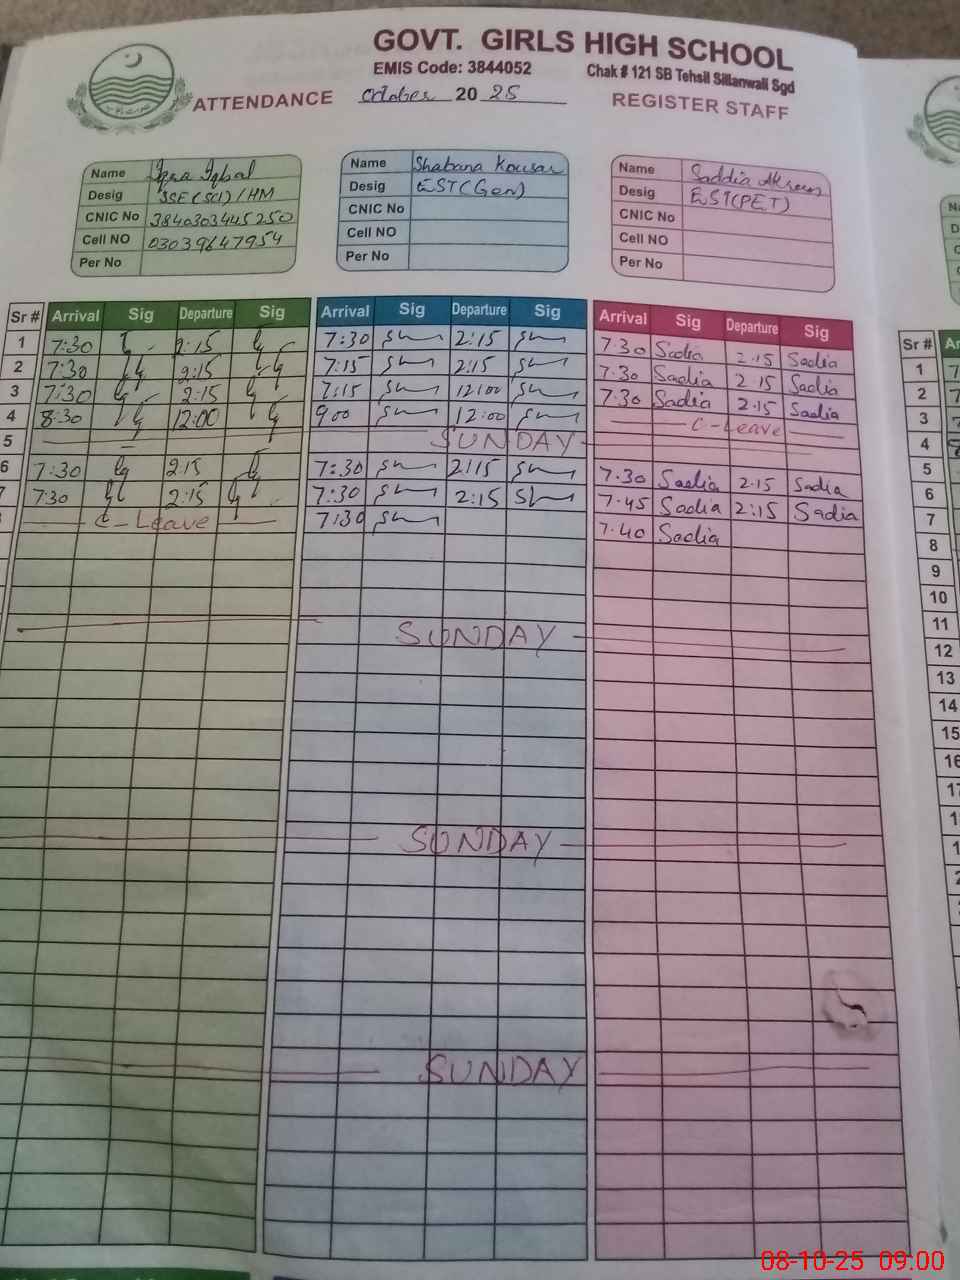 GOVT. GIRLS HIGH SCHOOL
EMIS Code: 3844052 Chak # 121 SB Tehsil Sillanwali Sgd
ATTENDANCE October 2025 REGISTER STAFF
Name Iqra Iqbal
Desig SSE(SCI)/HM
CNIC No 3840303445250
Cell NO 03039647954
Per No
Name Shabana Kousar
Desig EST(Gen)
CNIC No
Cell NO
Per No
Name Saddia Akram
Desig EST(PET)
CNIC No
Cell NO
Per No
Sr # Arrival Sig Departure Sig Arrival Sig Departure Sig Arrival Sig Departure Sig Sr #
1 7:30 2:15 7:30 2:15 7:30 Sadia 2:15 Sadia 1
2 7:30 2:15 7:15 2:15 7:30 Sadia 2:15 Sadia 2
3 7:30 2:15 7:15 12:00 7:30 Sadia 2:15 Sadia 3
4 8:30 12:00 900 12:00 C-Leave 4
5 SUNDAY 5
6 7:30 2:15 7:30 2:15 7.30 Sadia 2:15 Sadia 6
7:30 2:15 7:30 2:15 7.45 Sadia 2:15 Sadia 7
C-Leave 7:30 7.40 Sadia 8
9
10
11
SUNDAY 12
13
14
15
16
SUNDAY
SUNDAY
08-10-25 09:00